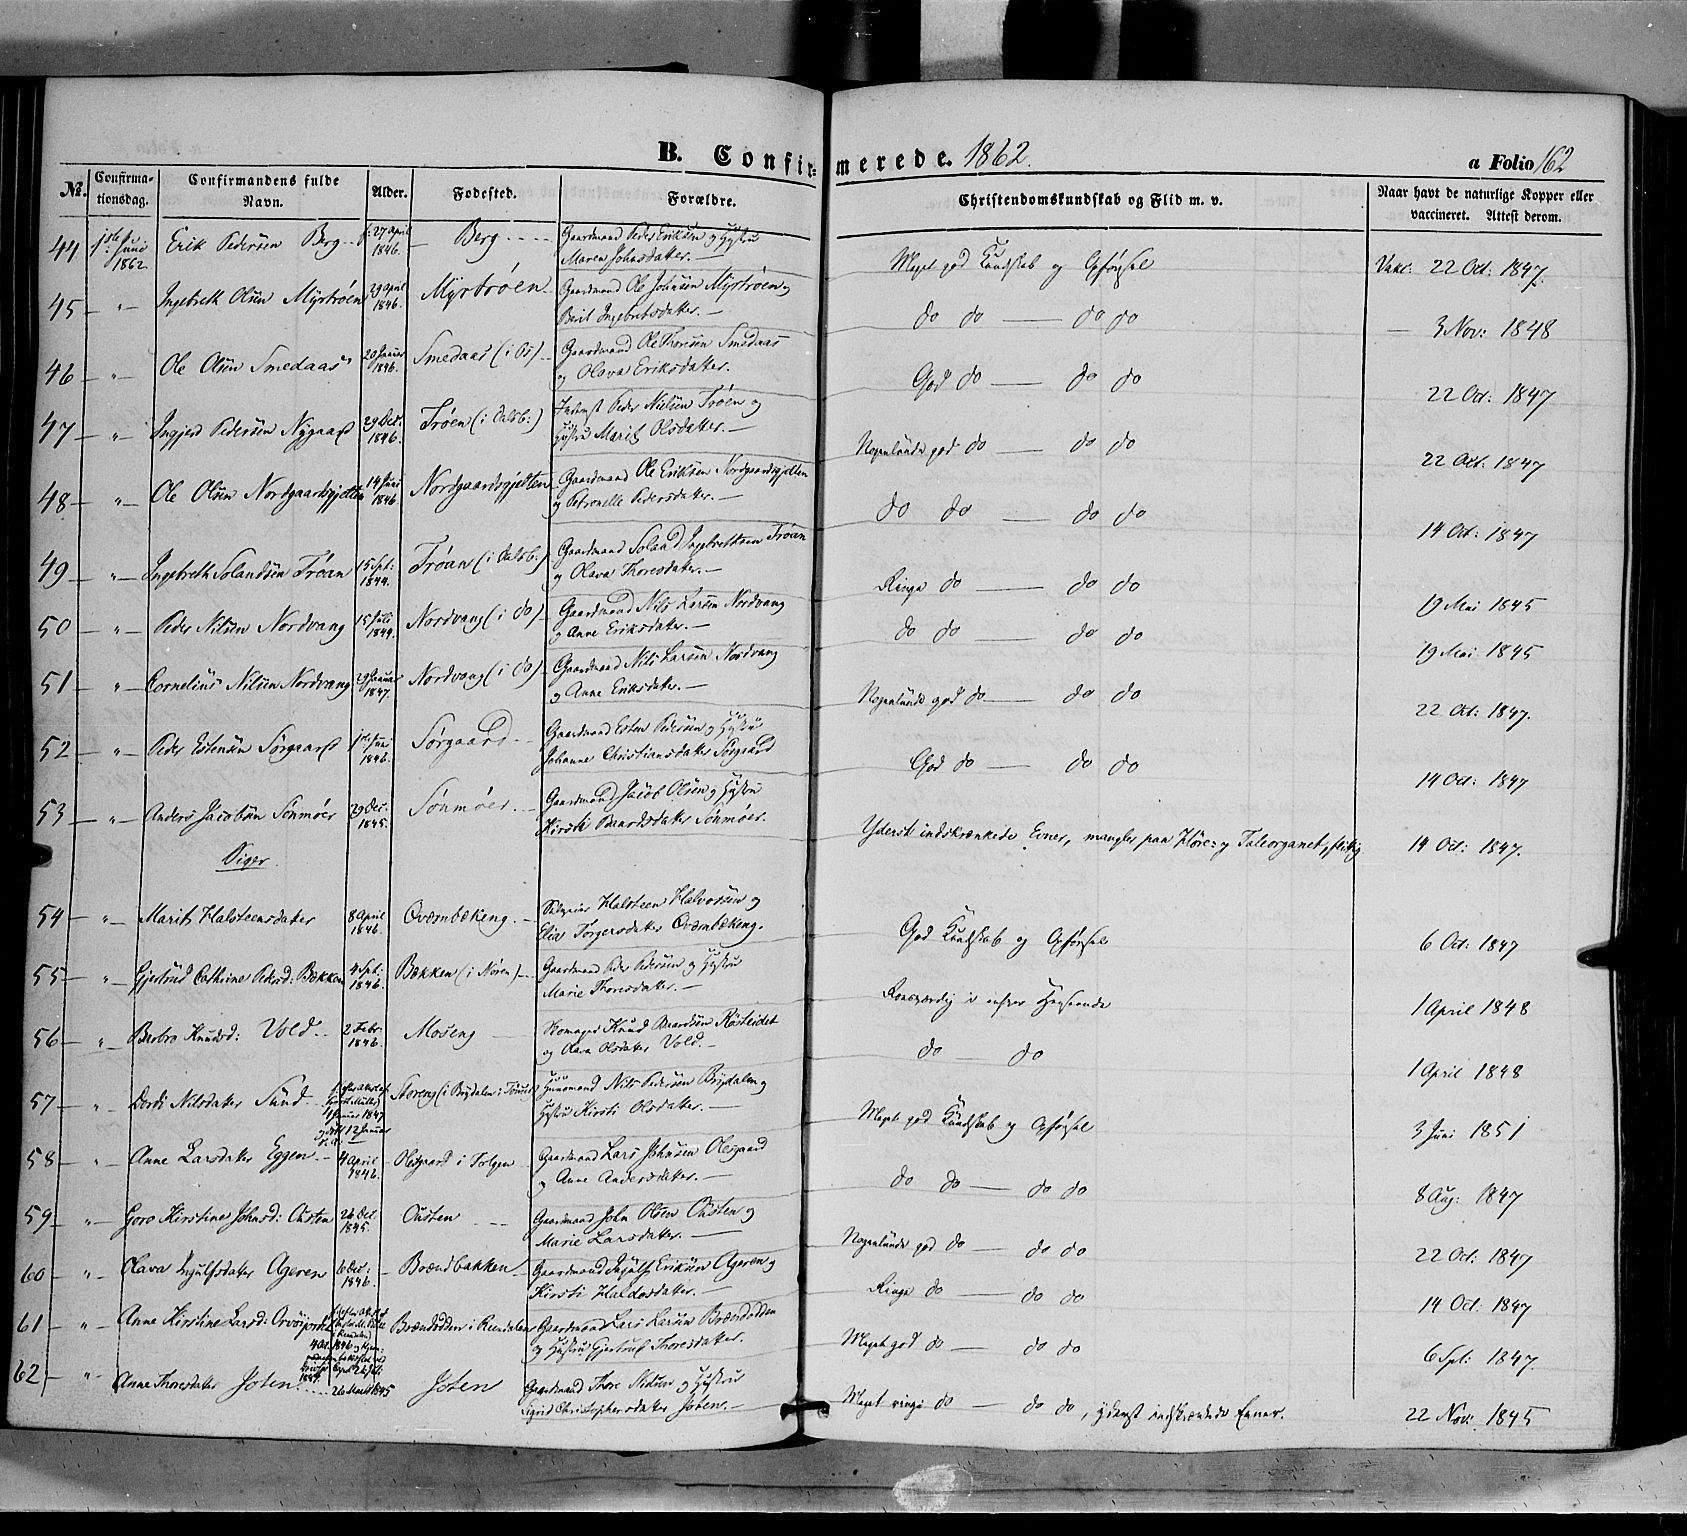 B. Confirmerede. 1862. a Folio 162
No. Confirmationsdag. Confirmandens fulde Navn. Alder. Fødested. Forældre. Christendomskundskab og Flid m. v. Naar havt de naturlige Kopper eller vaccineret. Attest derom.
44 1ste Juni 1862. Erik Pedersen Berg f. 27 April 1846. Berg Gaardmand Peder Eriksen og Hustru Maren Johnsdatter. Meget god Kundskab og Opførsel Vakc. 22 Oct: 1847.
45 " Ingebreth Olsen Myrtrøen 29 April 1846. Myrtrøen Gaardmand Ole Johnsen Myrtrøen og Berit Ingebretsdatter. do do — do do — 3 Nov: 1848
46 " Ole Olsen Smedaas 20 Januar 1846. Smedaas (i Os) Gaardmand Ole Thoresen Smedaas og Olava Eriksdatter. God do — do do 22 Oct: 1847
47 " Ingjerd Pedersen Nygaard 29 Dec. 1846. Trøen (i Dalsb:) Inderst Peder Nielsen Trøen og Hustru Marit Olsdatter. Nogenlunde god do — do do 22 Oct. 1847
48 " Ole Olsen Nordgaardsjetten 14 Juni 1846 Nordgaardsjetten Gaardmand Ole Eriksen Nordgaardsjetten og Petronelle Pedersdatter. do do — do do 14 Oct: 1847
49 " Ingebreth Solandsen Trøan 15 Spt: 1844. Trøan (i Dalsb:) Gaardmand Soland Ingebrethsen Trøan og Olava Thoresdatter. Ringe do — do do 19 Mai 1845
50 " Peder Nilsen Nordvang 15 Juli 1844. Nordvang (i do) Gaardmand Nils Larsen Nordvang og Anne Eriksdatter. do do — do do 19 Mai 1845
51 " Cornelius Nilsen Nordvang 29 Januar 1847. Nordvang (i do) Gaardmand Nils Larsen Nordvang og Anne Eriksdatter. Nogenlunde god do — do do 22 Oct: 1847.
52 " Peder Estensen Sørgaard 1846. Sørgaard Gaardmand Esten Pedersen og Hustru Johanne Christiansdatter Sørgaard God do — do do 14 Oct: 1847
53 " Anders Jacobsen Sønmøer 29 Dec. 1845. Sønmøer Gaardmand Jacob Olsen og Hustru Kirsti Baardsdatter Sønmøer. Yderst indskrænkede Evner, mangler paa Høre- og Taleorganet, flittig 14 Oct: 1847.
Piger.
54 " Marit Halsteensdatter 8 April 1846. Qværnbækeng. Halsteen Halvorsen og Torgersdatter Qværnbækeng. God Kundskab og Opførsel 6 Oct: 1847
55 " Gjertrud Cathrine Pedersd: Bækken 4 Spt: 1846. Bækken (i Nøren) Gaardmand Peder Pedersen og Hustru Marie Thoresdatter. Roesværdig i enhver Henseende 1 April 1848
56 " Berbro Knudsd: Vold 2 Febr. 1846. Moseng Skomager Knud Baardsen Røsteidet og Olava Olsdatter Vold. do — do 1 April 1848
57 " Dordi Nilsdatter Sund 1 Januar 1847 12 Januar Storeng (i Brydalen i Tønset) Huusmand Nils Pedersen Brydalen og Hustru Kirsti Olsdatter. Meget god Kundskab og Opførsel 3 Juni 1851
58 " Anne Larsdatter Eggen 4 April 1846. Olesgaard i Tolgen Gaardmand Lars Johnsen Olesgaard og Anne Andersdatter. do do — do do 8 Aug: 1847
59 " Goro Kirstine Johnsd: Ousten 26 Oct. 1845. Ousten Gaardmand John Olsen Ousten og Marie Larsdatter. Nogenlunde god do — do do 22 Oct. 1847
60 " Olava Ingulfsdatter Ageren 6 Dec: 1846. Brændbakken Gaardmand Ingulf Eriksen Ageren og Kirsti Haldosdatter. Ringe do — do do 14 Oct: 1847
61 " Anne Kirstine Larsd: 4 Oct. 1846 Brændodden i Rendalen Gaardmand Lars Larsen Brændodden og Hustru Gjertrud Thoresdatter. Meget god do — do do 6 Spt: 1847.
62 " Anne Thoresdatter Joten 26 Marts 1845 Joten Gaardmand Thore Nilsen og Hustru Sigrid Christophersdatter Joten. Meget ringe do — do do, yderst indskrænkede Evner. 22 Nov: 1845